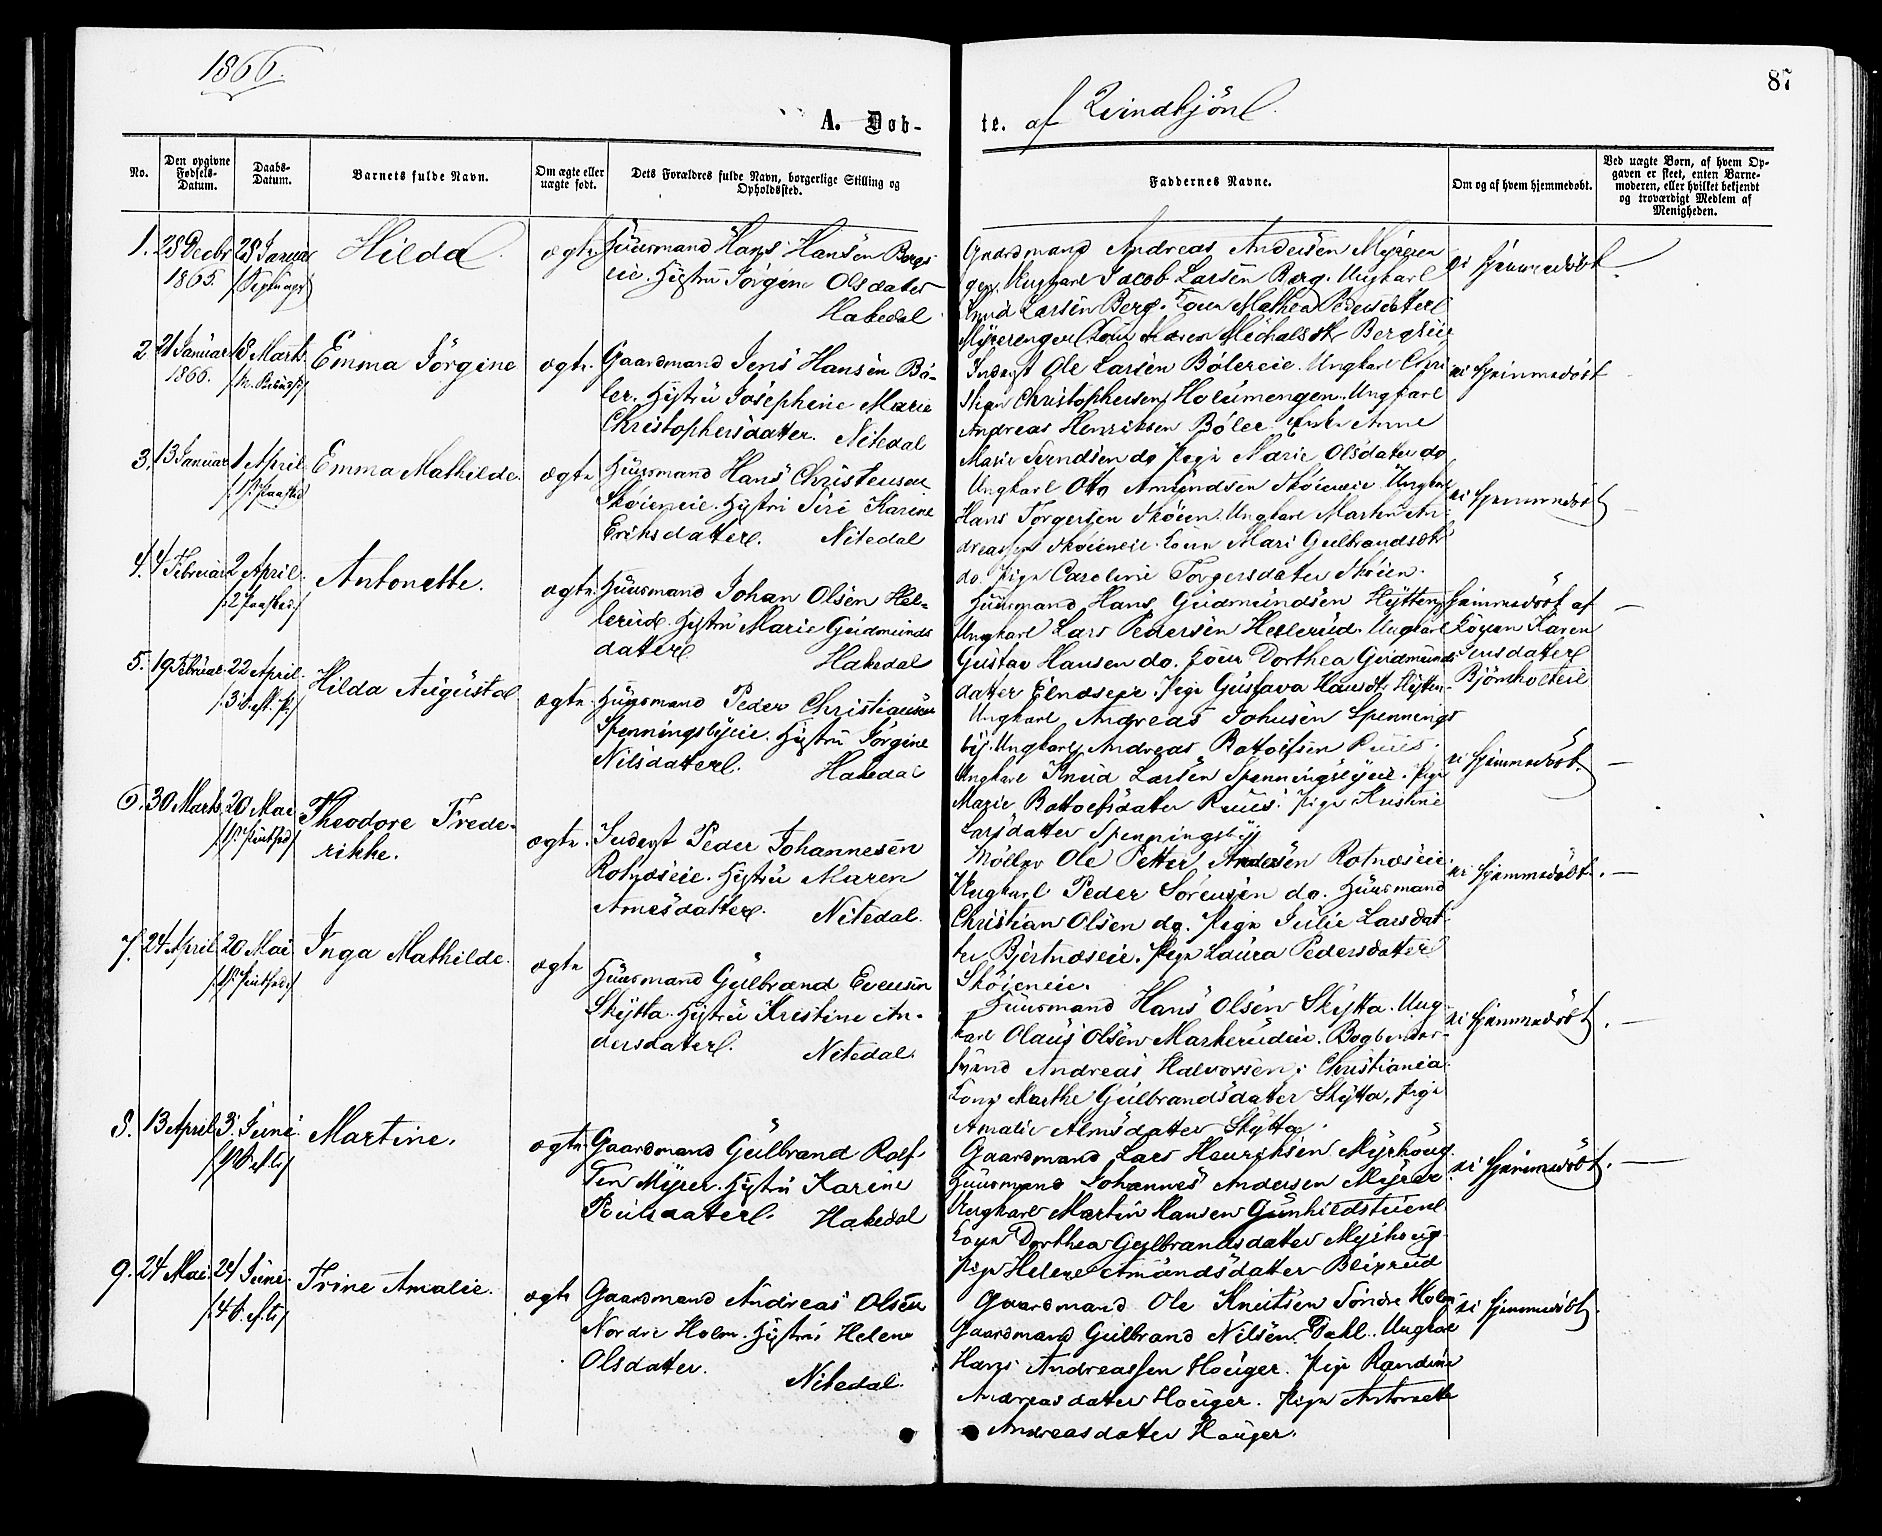 1866.
87
A. Døb-
te. af Qvindkjön.
No.
Den opgivne Fødsels-Datum.
Daabs-Datum.
Barnets fulde Navn.
Om ægte eller uægte født.
Dets Forældres fulde Navn, borgerlige Stilling og Opholdssted.
Faddernes Navne.
Om og af hvem hjemmedøbt.
Ved uægte Børn, af hvem Op-
gaven er skeet, enten Barne-
moderen, eller hvilket bekjendt
og troværdigt Medlem af
Menigheden.
1. 28 Decbr 1865. 28 Januar
Hilda
ægte
Huusmand Hans Hansen Bergs-
eie. Hustru Jörgine Olsdatter
Hakedal
Gaardmand Andreas Andersen Myren-
gen. Ungkarl Jacob Larsen Berg. Ungkarl
Knud Larsen Berg. Kone Mathea Pedersdatter
Myrerengen. Kone Maren Michalsdtr Bergseie
ei hjemmedöbt.
2 21 Januar 1866. 18 Marts
Emma Jörgine
ægte.
Gaardmand Jens Hansen Bö-
ler. Hustru Josephine Marie
Christophersdatter. Nitedal
Inderst Ole Larsen Bölereie. Ungkarl Chri
stian Christophersen Holumengen. Ungkarl
Andreas Henriksen Böler. Enke Anne
Marie Svendsen do Pige Marie Olsdatter do
ei hjemmedöbt
3. 13 Januar 1 April
Emma Mathilde.
ægte
Huusmand Hans Christensen
Skøieneie. Hustru Siri Karine
Eriksdatter. Nitedal
Ungkarl Otto Amundsen Skøieneie. Ungkarl
Hans Torgersen Skøien. Ungkarl Martin An-
dreassen Skøieneie. Kone Mari Gulbrandsdtr
do. Pige Caroline Torgersdatter Skøien.
ei hjemmedöbt
4. 4 Februar 2 April
Antonette.
ægte.
Huusmand Johan Olsen Hel-
lerud. Hustru Marie Gudmunds
datter. Hakedal
Huusmand Hans Gudmundsen Hytten,
Ungkarl Lars Pedersen Hellerud. Ungkarl
Gustav Hansen do. Kone Dorthea Gudmunds
datter Elndseie. Pige Gustava Hansdtr Hytten.
hjemmedöbt af
Konen Karen
Jensdatter
Björnholteie
5. 19 Februar 22 April.
Hilda Augusta
ægte.
Huusmand Peder Christiansen
Spenningsbyeie. Hustru Jörgine
Nilsdatter. Hakedal
Ungkarl Andreas Johnsen Spennings
by. Ungkarl Andreas Bottolfsen Ruus.
Ungkarl Knud Larsen Spenningsbyeie. Pige
Marie Bottolfsdatter Ruus. Pige Kristine
Larsdatter Spenningsby
ei hjemmedöbt.
6. 30 Marts 20 Mai
Theodore Frede-
rikke.
ægte.
Inderst Peder Johannesen
Rotnæseie. Hustru Maren
Arnesdatter. Nitedal.
Möller Ole Petter Andersen Rotnæseie.
Ungkarl Peder Sörensen do. Huusmand
Christian Olsen do. Pige Julie Larsdat-
ter Bjertnæseie. Pige Laura Pedersdatter
Skøieneie.
ei hjemmedöbt.
7. 24 April 20 Mai
Inga Mathilde.
ægte
Huusmand Gulbrand Evensen
Skytta. Hustru Kristine An-
dersdatter. Nitedal.
Huusmand Hans Olsen Skytta. Ung
karl Olaus Olsen Markerudeie. Bogbinder-
svend Andreas Halvorsen, Christiania
Kone Marthe Gulbrandsdatter Skytta, Pige
Amalie Almsdatter Skytta.
ei hjemmedöbt.
8. 13 April 3. Juni
Martine.
ægte
Gaardmand Gulbrand Rolf-
sen Myrer. Hustru Karine
Poulsdatter. Hakedal
Gaardmand Lars Henriksen Myrhoug
Huusmand Johannes Andersen Myrer
Ungkarl Martin Hansen Gunhildstuen
Kone Dorthea Gulbrandsdatter Myrhoug.
Pige Helene Amundsdatter Bleiperud
ei hjemmedöbt.
9. 24 Mai. 24 Juni.
Trine Amalie.
ægte
Gaardmand Andreas Olsen
Nordre Holm. Hustru Helene
Olsdatter. Nitedal.
Gaardmand Ole Knutsen Söndre Holm
Gaardmand Gulbrand Nilsen Dahl. Ungkarl
Hans Andreassen Houger. Pige Randine
Andreasdatter Houger. Pige Antonette
Andreasdatter Houger.
ei hjemmedöbt.